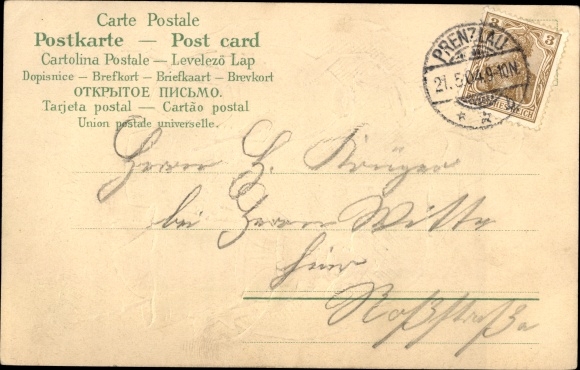 Carte Postale
Postkarte — Post card
Cartolina Postale — Levelező Lap
Dopisnice — Brefkort — Briefkaart — Brevkort
ОТКРЫТОЕ ПИСЬМО.
Tarjeta postal — Cartão postal
Union postale universelle.
PRENZLAU
21.5.04.9-10N.
* *
3 3
REICH
Herrn H. Krüger
bei Herrn Witte
hier
Roßstraße